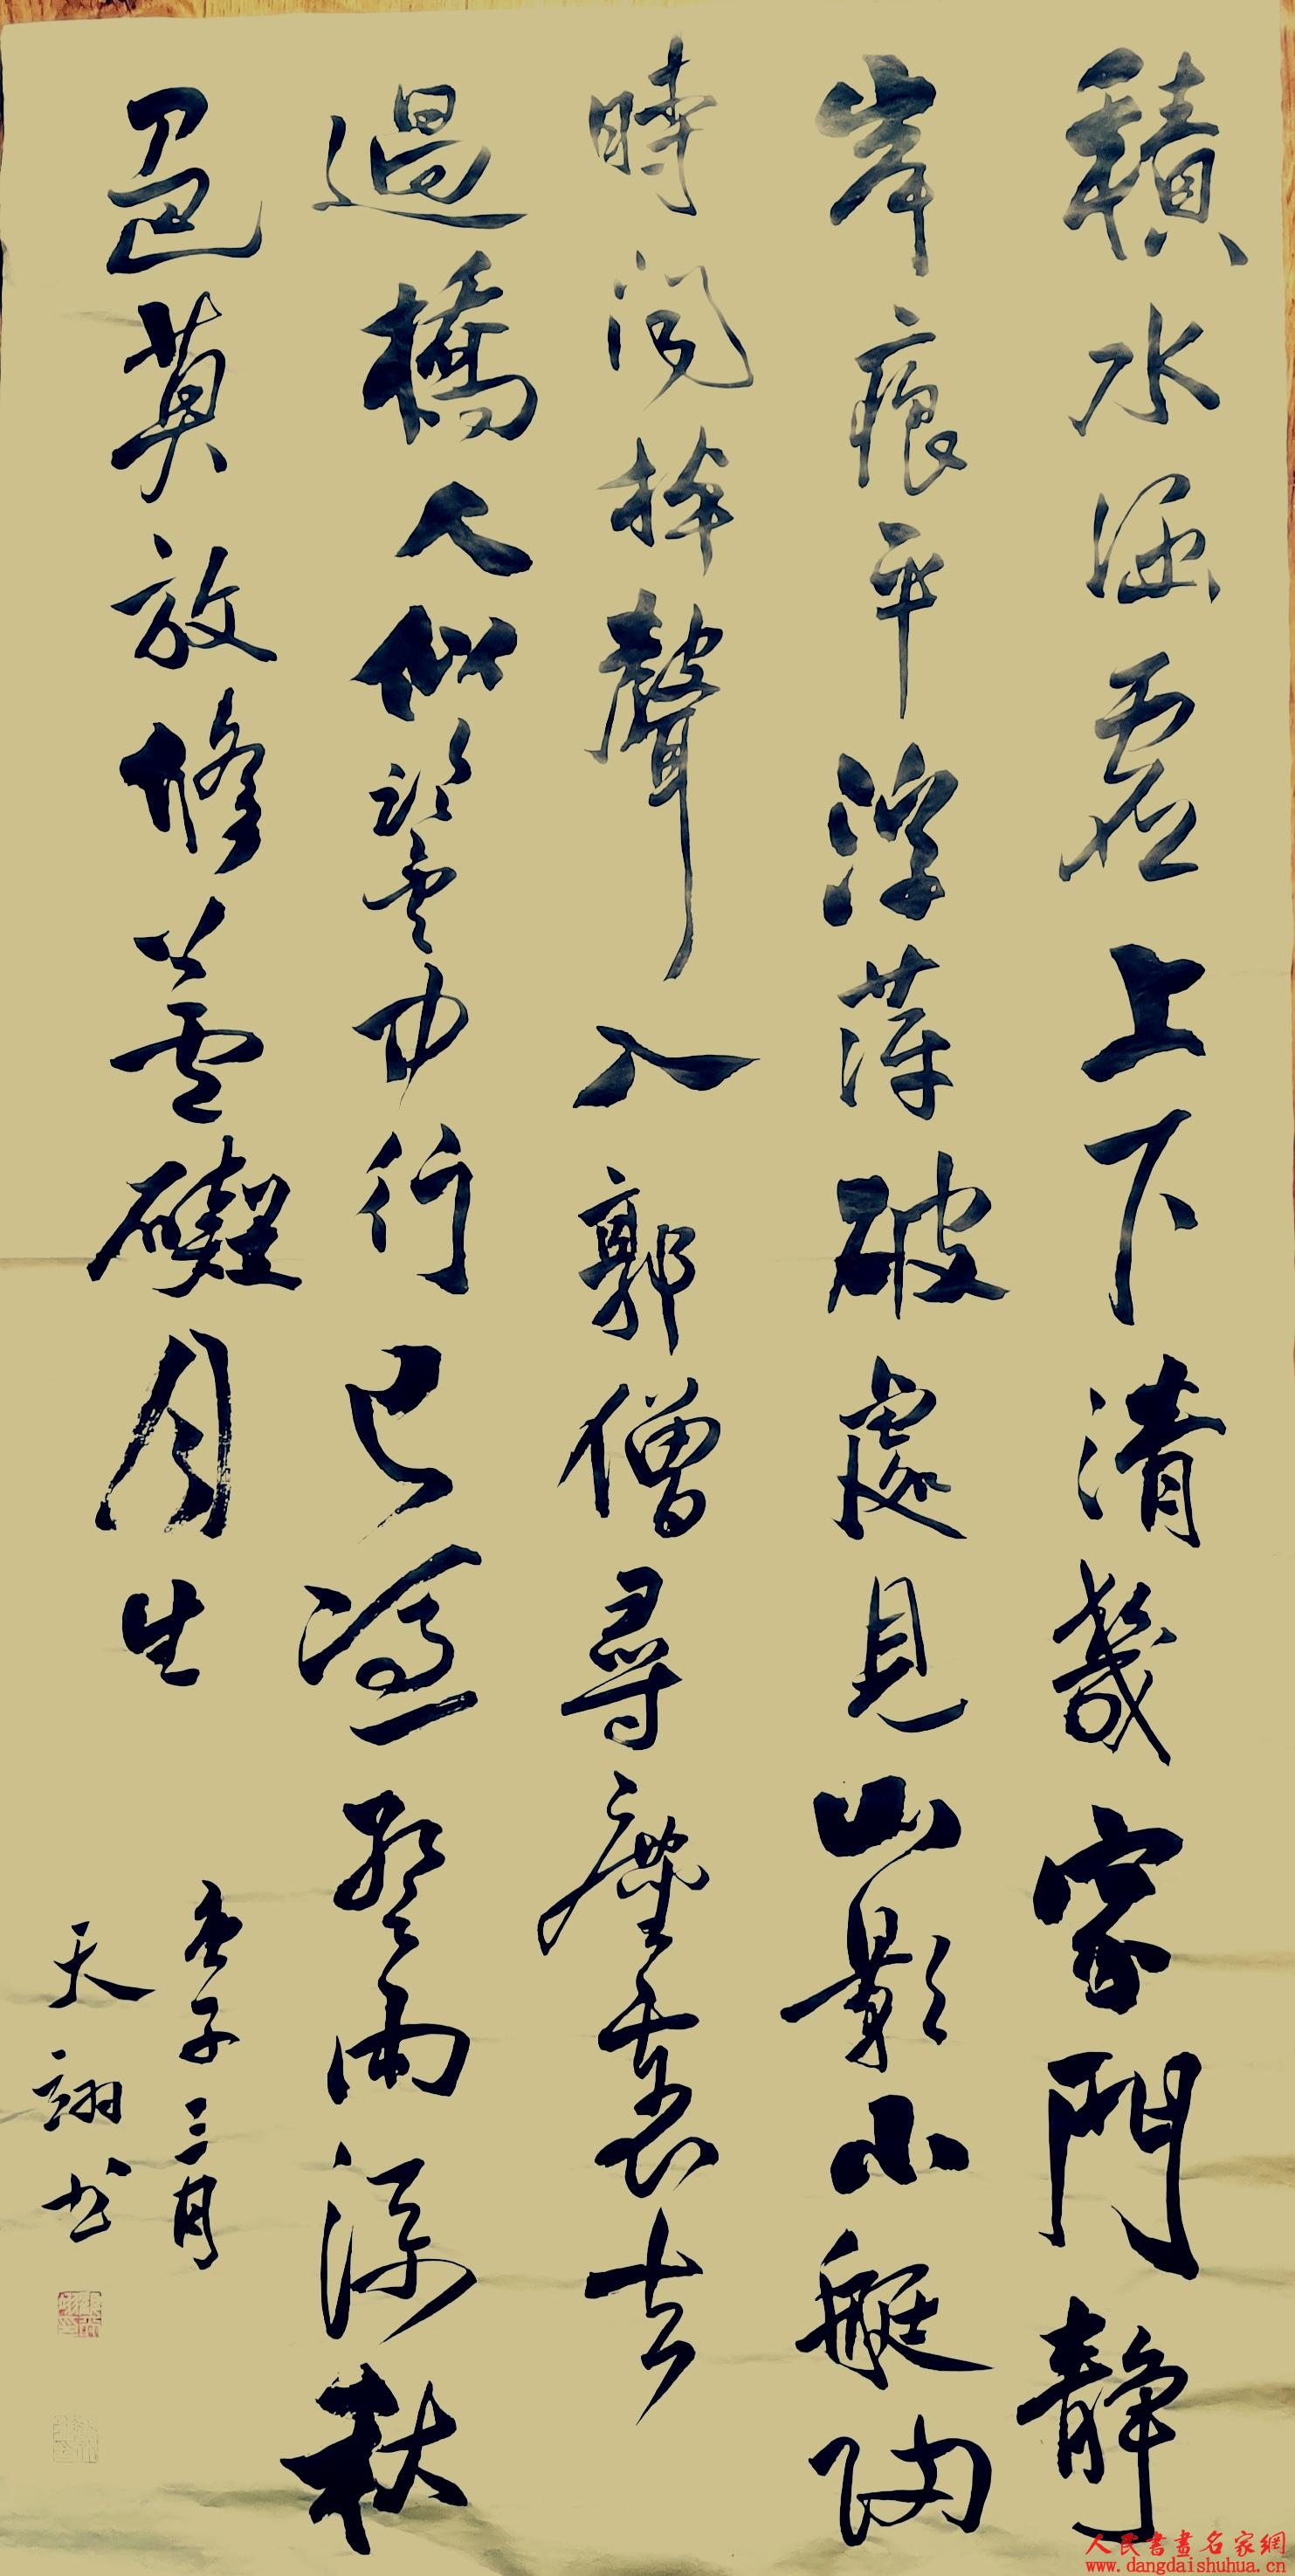 積水涵虛上下清幾家門靜
岸痕平浮萍破處見山影小艇
時聞棹聲入郭僧尋塵裏去
過橋人似鑒中行已憑暫雨添秋
色莫放修蘆礙月生
庚子三月
天翊书
人民書畫名家網
www.dangdaishuhua.cn